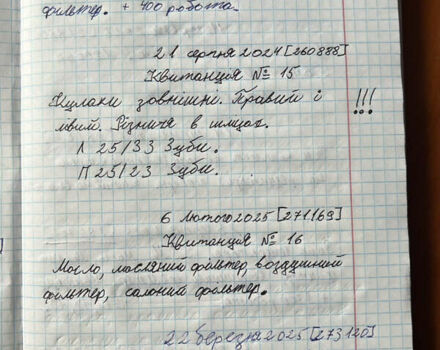 фільтер. + 400 робота.
21 серпня 2024 [260888]
Квитанция № 15
Кулаки зовнішні. Правий і !!!
лівий. Різниця в шліцах.
Л 25/33 Зуби.
П 25/23 Зуби.
6 лютого 2025 [271169]
Квитанция № 16
Масло, масляний фільтер, воздушний
фільтер, салоний фільтер.
22 березня 2025 [273120]